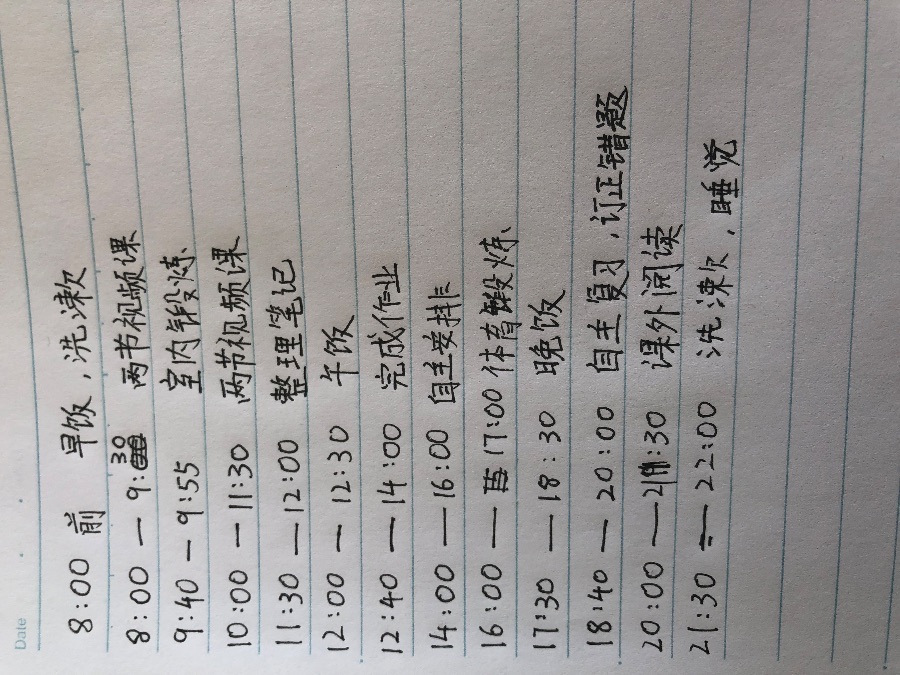 Date
8:00 前 早饭，洗漱
8:00 — 9:30 两节视频课
9:40 — 9:55 室内锻炼
10:00 — 11:30 两节视频课
11:30 — 12:00 整理笔记
12:00 — 12:30 午饭
12:40 — 14:00 完成作业
14:00 — 16:00 自主安排
16:00 — 17:00 体育锻炼
17:30 — 18:30 晚饭
18:40 — 20:00 自主复习，订正错题
20:00 — 21:30 课外阅读
21:30 — 22:00 洗漱，睡觉